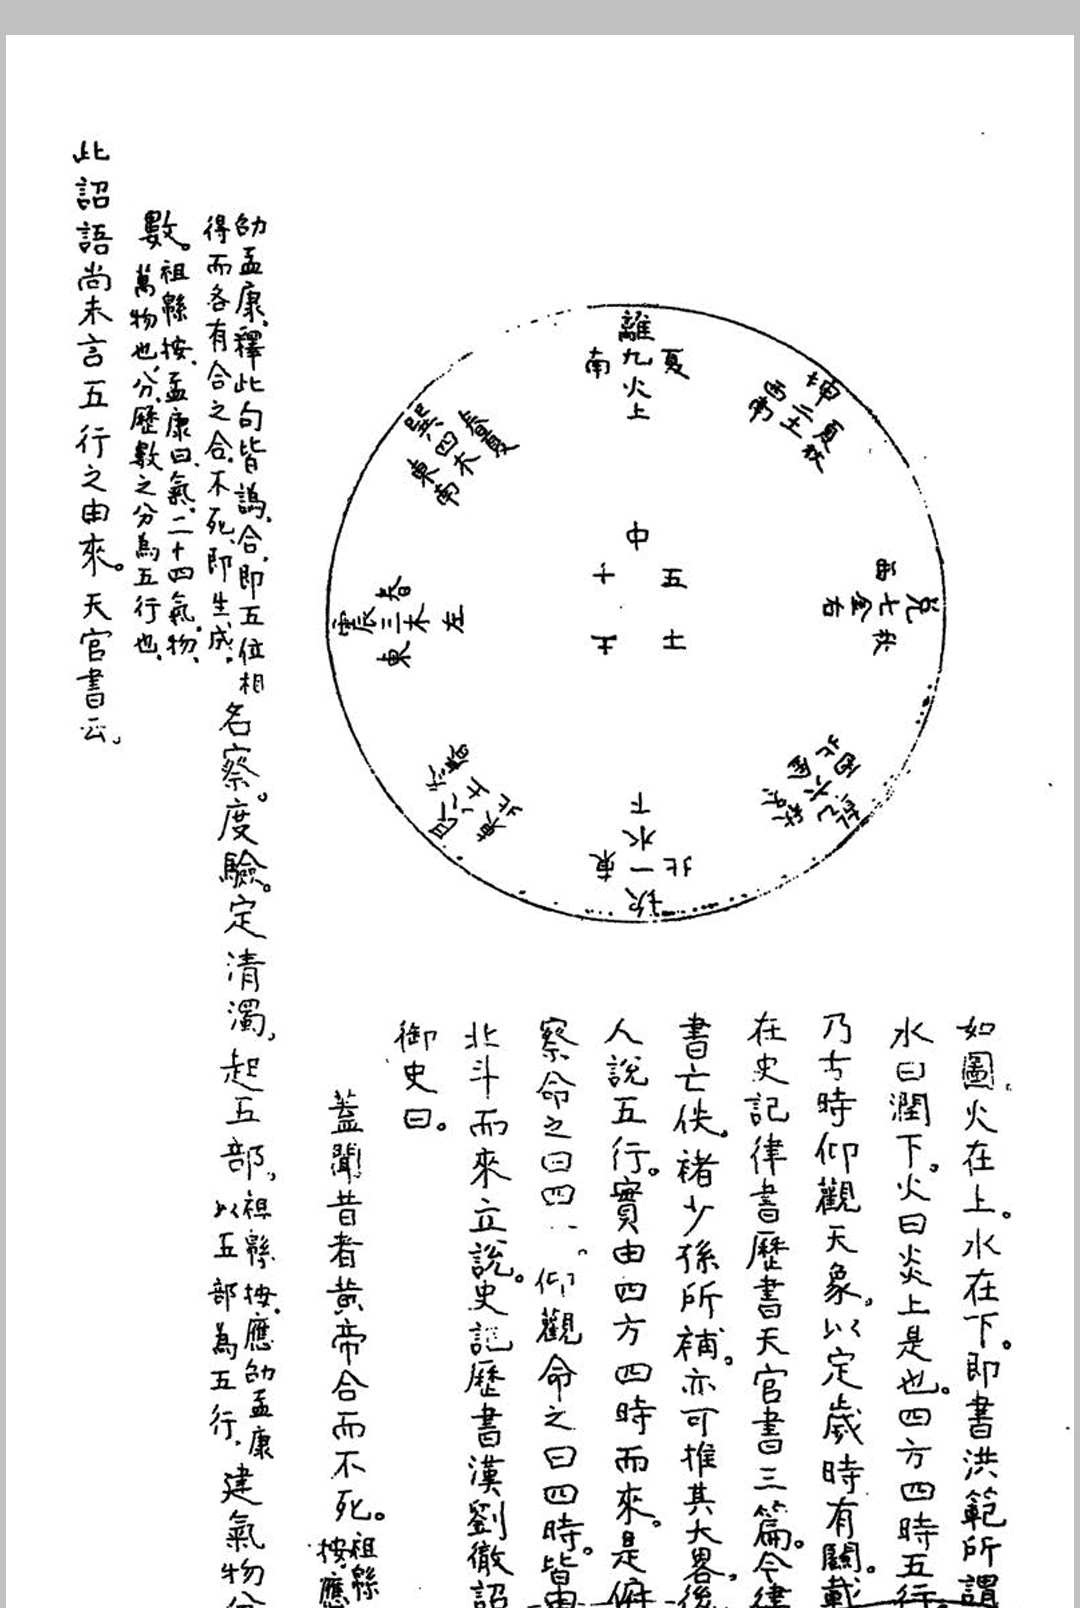 離九火上
南
夏
坤二土
西南
夏秋
巽四木
春夏
東南
中
五
十
土
土
震三木左
春
東
兌七金右
西
秋
乾六金
西北
艮八土
東北
坎一水下
北
如圖火在上。水在下。即書洪範所謂
水曰潤下。火曰炎上是也。四方四時五行。
乃古時仰觀天象。以定歲時有關。載
在史記律書歷書天官書三篇。今律
書亡佚。褚少孫所補。亦可推其大畧。後
人說五行。實由四方四時而來。是俯
察命之曰四。仰觀命之曰四時。皆由
北斗而來立說。史記歷書漢劉徹詔
御史曰。
蓋聞昔者黃帝合而不死。祖緜
按、應
劭孟康、釋此句皆譌、合、即五位相
得而各有合之合、不死、即生成、
名察。度驗。定清濁、起五部、祖緜、按、應劭孟康
以五部為五行、
建氣物分
數。祖緜按、孟康曰、氣、二十四氣、物、
萬物也、分、歷數之分為五行也、
此詔語尚未言五行之由來。天官書云、